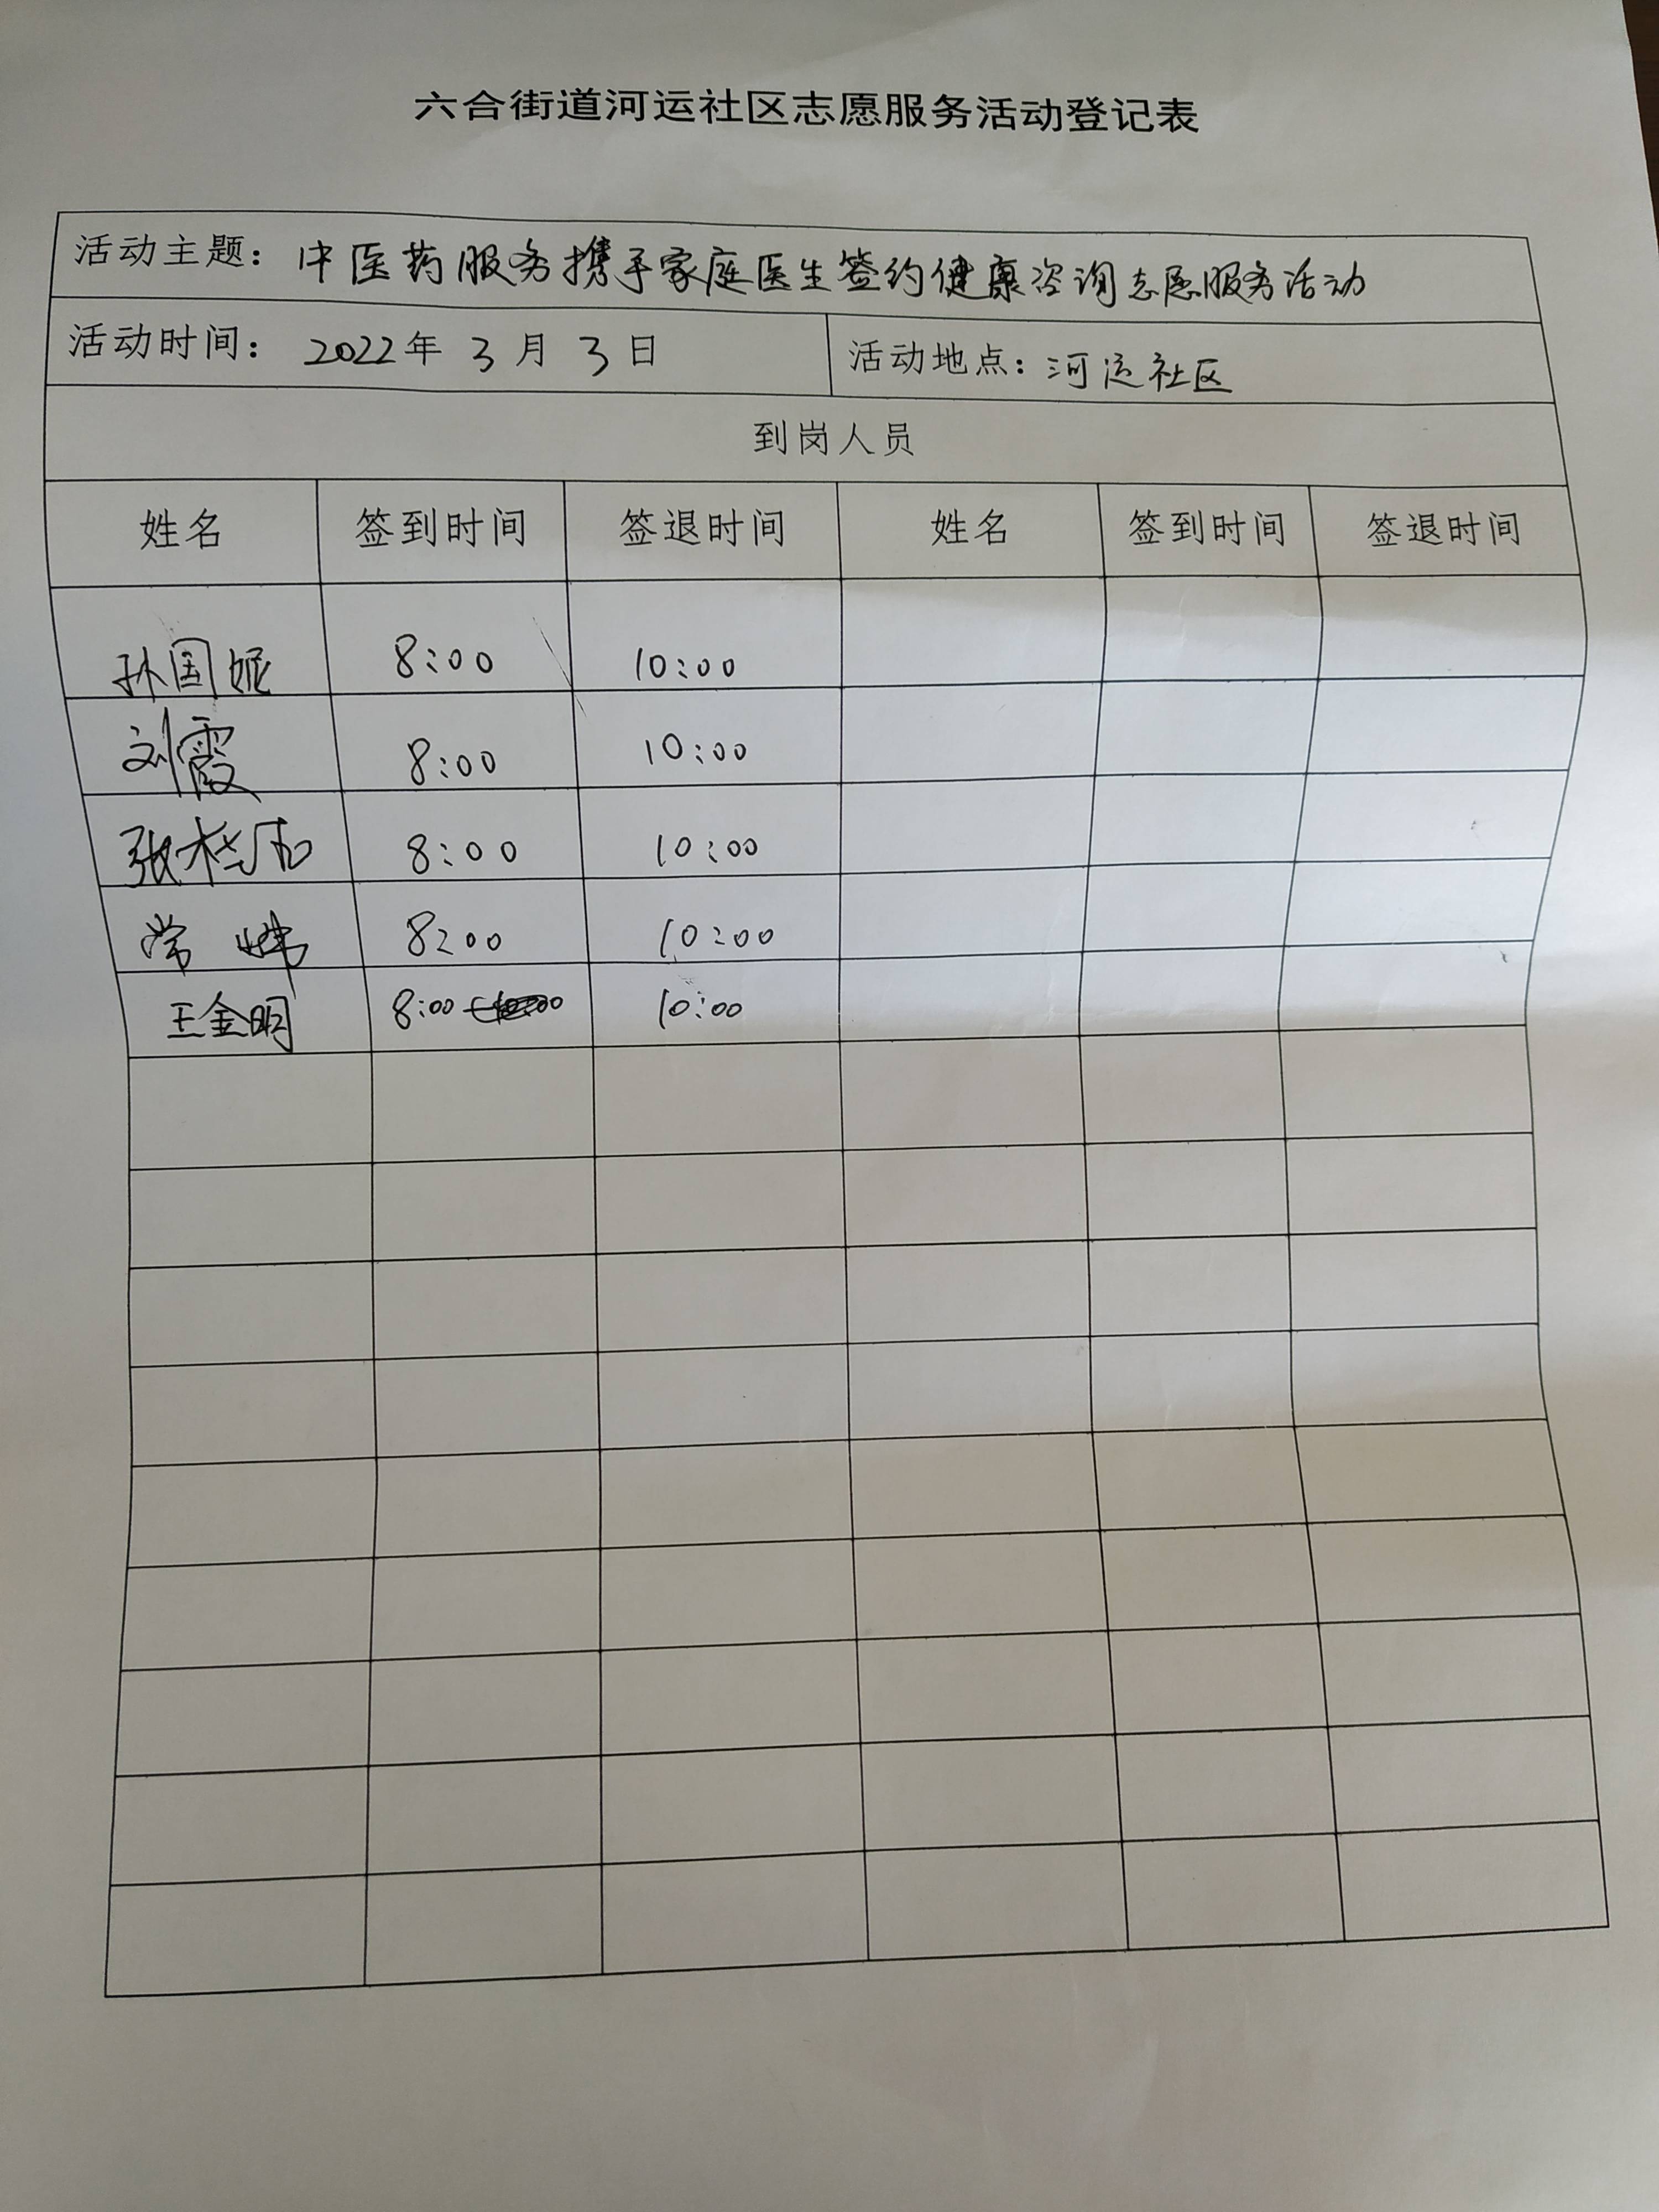 六合街道河运社区志愿服务活动登记表
活动主题：中医药服务携手家庭医生签约健康咨询志愿服务活动
活动时间：2022年 3月 3日 活动地点：河运社区
到岗人员
姓名 签到时间 签退时间 姓名 签到时间 签退时间
孙国妮 8:00 10:00
刘霞 8:00 10:00
张 8:00 10:00
常 8:00 10:00
王金明 8:00 10:00